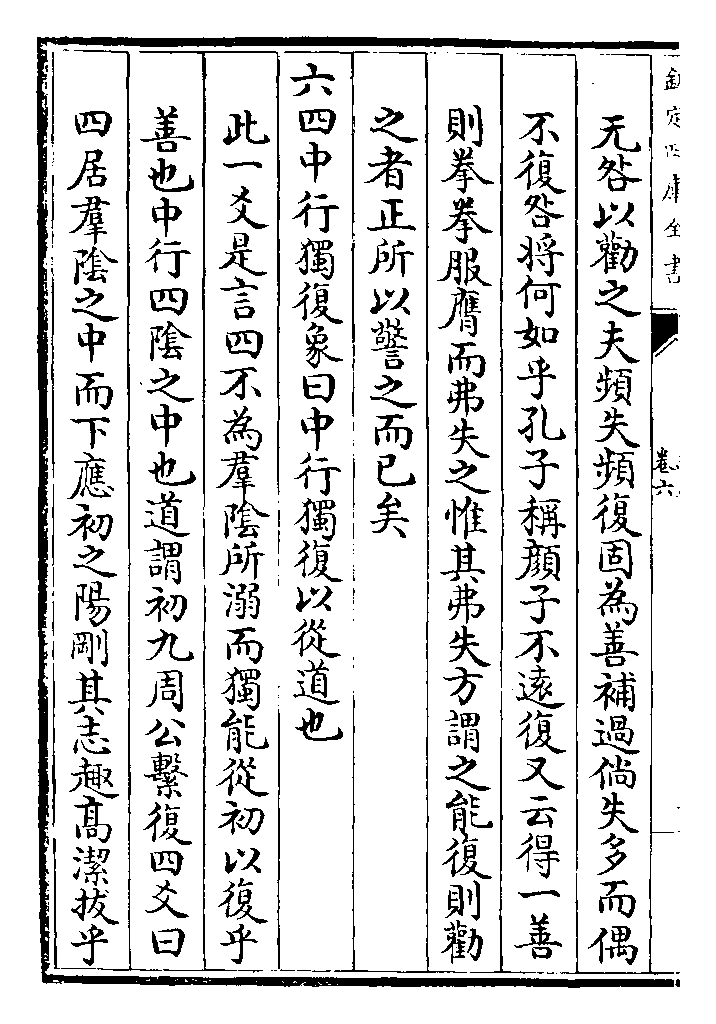 欽定四庫全書
卷六
无咎以勸之夫頻失頻復固為善補過倘失多而偶
不復咎將何如乎孔子稱顔子不逺復又云得一善
則拳拳服膺而弗失之惟其弗失方謂之能復則勸
之者正所以警之而已矣
六四中行獨復象曰中行獨復以從道也
此一爻是言四不為羣陰所溺而獨能從初以復乎
善也中行四陰之中也道謂初九周公繫復四爻曰
四居羣陰之中而下應初之陽剛其志趣髙潔拔乎